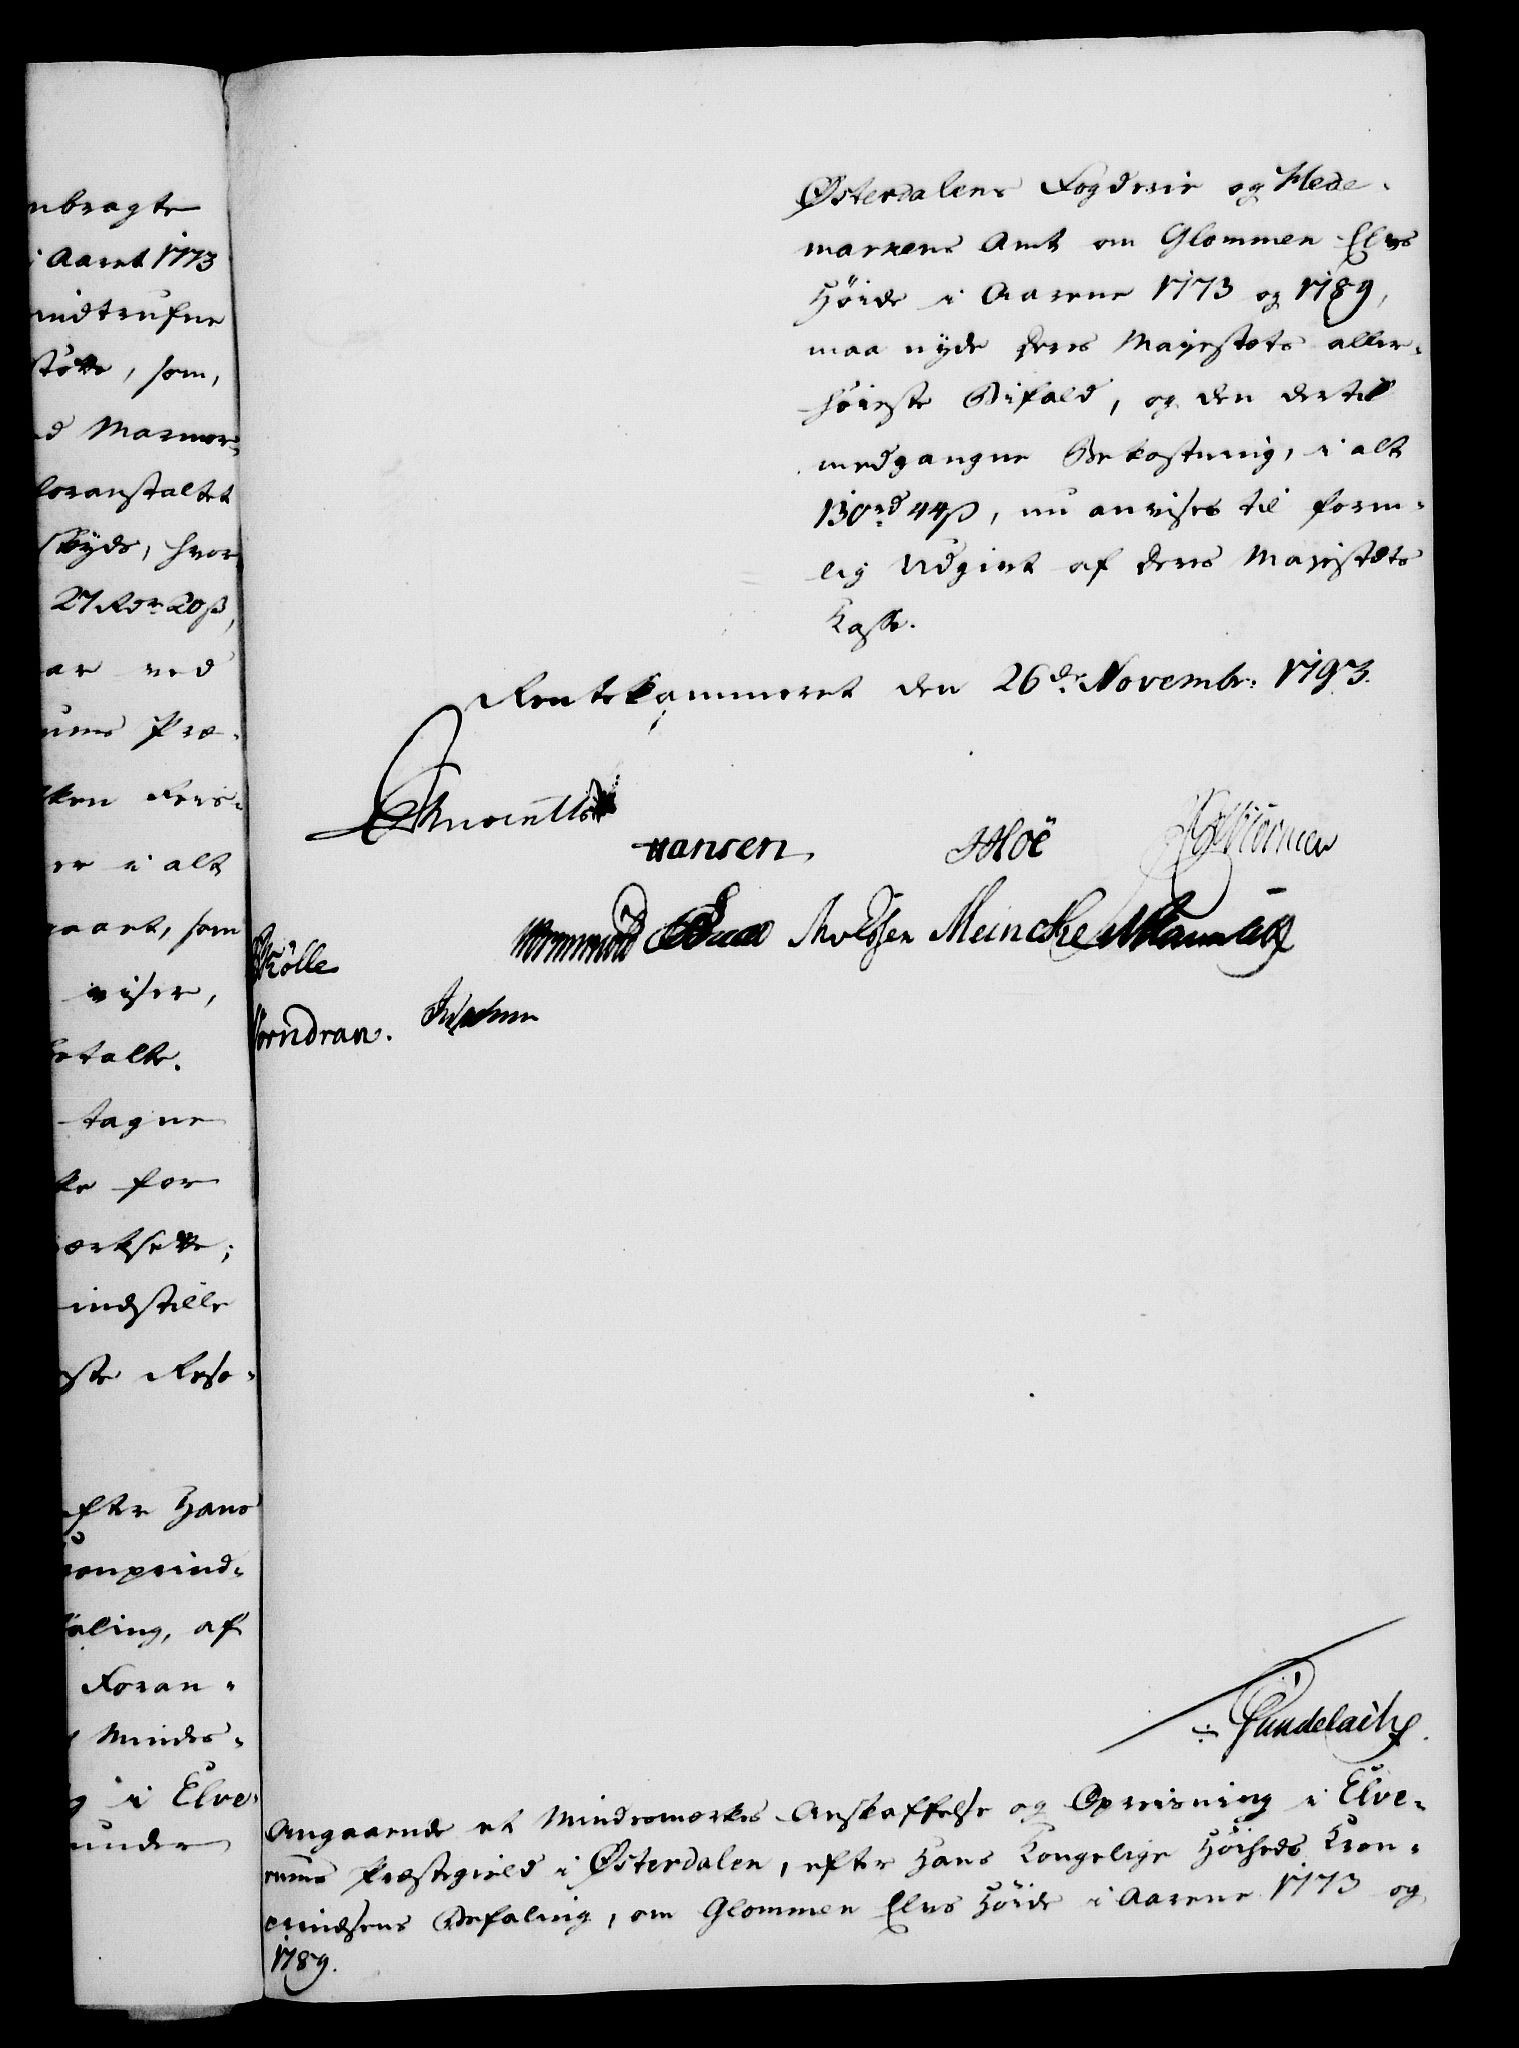 nbragte
i Aaret 1773
indtrufne
støtte, som,
d Marmor-
foranstaltet
Skyds, hvor,
27 Rdr 20 ß,
ar ved
ums Præ-
ken Fers-
er i alt
gaaet, som
viser,
betalte.
tagne
ke for
værksette;
indstille
ste Reso-
efter Hans
ronprind-
faling, af
Foran-
Mindes-
g i Elve-
under
Østerdalens Fogderie og Hede-
markens Amt om Glommen Elvs
Høide i Aarene 1773 og 1789,
maa nyde Deres Majestæts aller-
høieste Bifald, og den dertil
medgangne Bekostning, i alt
130 rd 44 ß, nu anvises til form-
lig Udgivt af Deres Majestæts
Kasse.
Rentekammeret den 26de Novembr: 1793.
Hansen Hoë
Wormskiold Meincke
Kølle
Vorndran.
Gundelach.
Angaaende et Mindesmærkes Anskaffelse og Opreisning i Elve-
rums Præstegield i Østerdalen, efter Hans Kongelige Høiheds Kron-
prindsens Befaling, om Glommen Elvs Høide i Aarene 1773 og
1789.